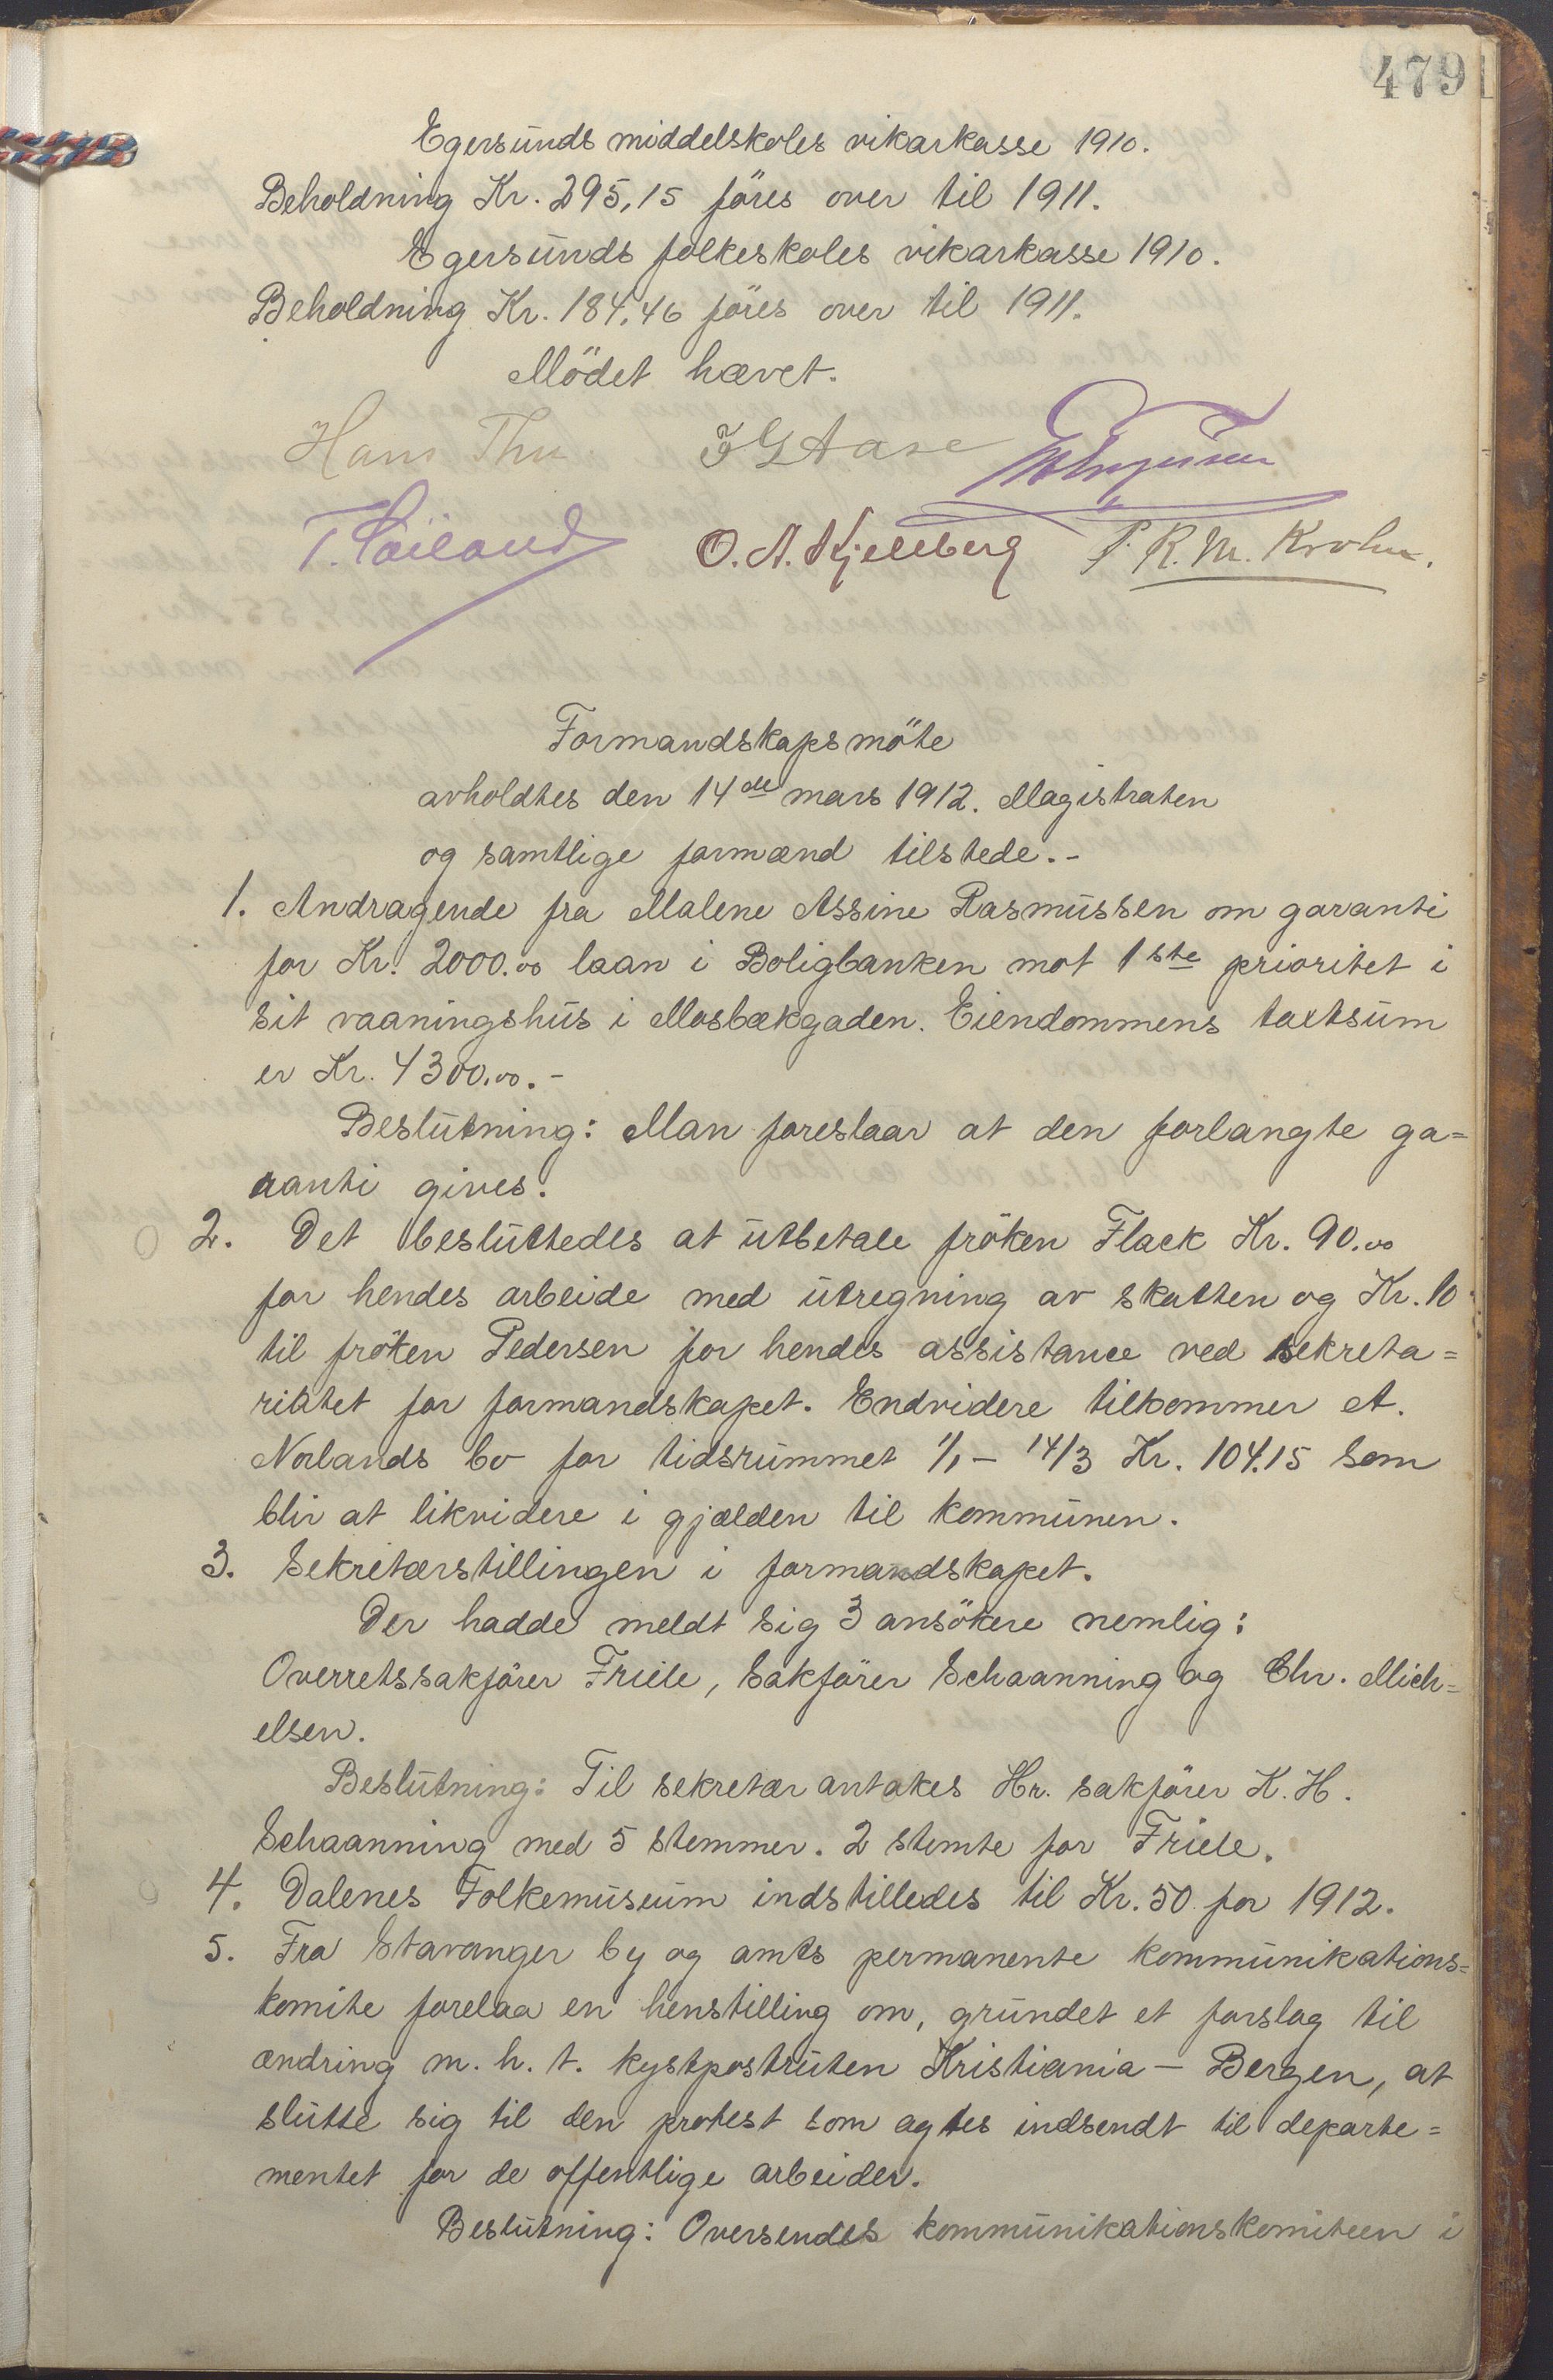 479
Egersunds middelskoles vikarkasse 1910.
Beholdning Kr. 295,15 föres over til 1911.
Egersunds folkeskoles vikarkasse 1910.
Beholdning Kr. 184,46 föres over til 1911.
Mödet hævet.
Hans Thu J G Aase
T. Höiland O. A. Kjellberg P. R. M. Krohn.
Formandskapsmöte
avholdtes den 14de mars 1912. Magistraten
og samtlige formænd tilstede.-
1. Andragende fra Malene Assine Rasmussen om garanti
for Kr. 2000.00 laan i Boligbanken mot 1ste prioritet i
sit vaaningshus i Mosbækgaden. Eiendommens taxtsum
er Kr. 4300.00.-
Beslutning: Man foreslaar at den forlangte ga=
ranti gives.
2. Det besluttedes at utbetale fröken Flack Kr. 90.00
for hendes arbeide med utregning av skatten og Kr. 10
til fröken Pedersen for hendes assistance ved sekreta=
riatet for formandskapet. Endvidere tilkommer A.
Norlands bo for tidsrummet 1/1 - 14/3 Kr. 104.15 som
blir at likvidere i gjælden til kommunen.
3. Sekretærstillingen i formandskapet.
Der hadde meldt sig 3 ansökere nemlig:
Overretssakförer Friele, Sakförer Schaanning og Chr. Mich=
elsen.
Beslutning: Til sekretær antakes Hr. sakförer K. H.
Schaanning med 5 stemmer. 2 stemte for Friele.
4. Dalenes Folkemuseum indstilledes til Kr. 50 for 1912.
5. Fra Stavanger by og amts permanente kommunikations=
komite forelaa en henstilling om, grundet et forslag til
ændring m. h. t. kystpostruten Kristiania - Bergen, at
slutte sig til den protest som agtes indsendt til departe=
mentet for de offentlige arbeider.
Beslutning: Oversendes kommunikationskomiteen i